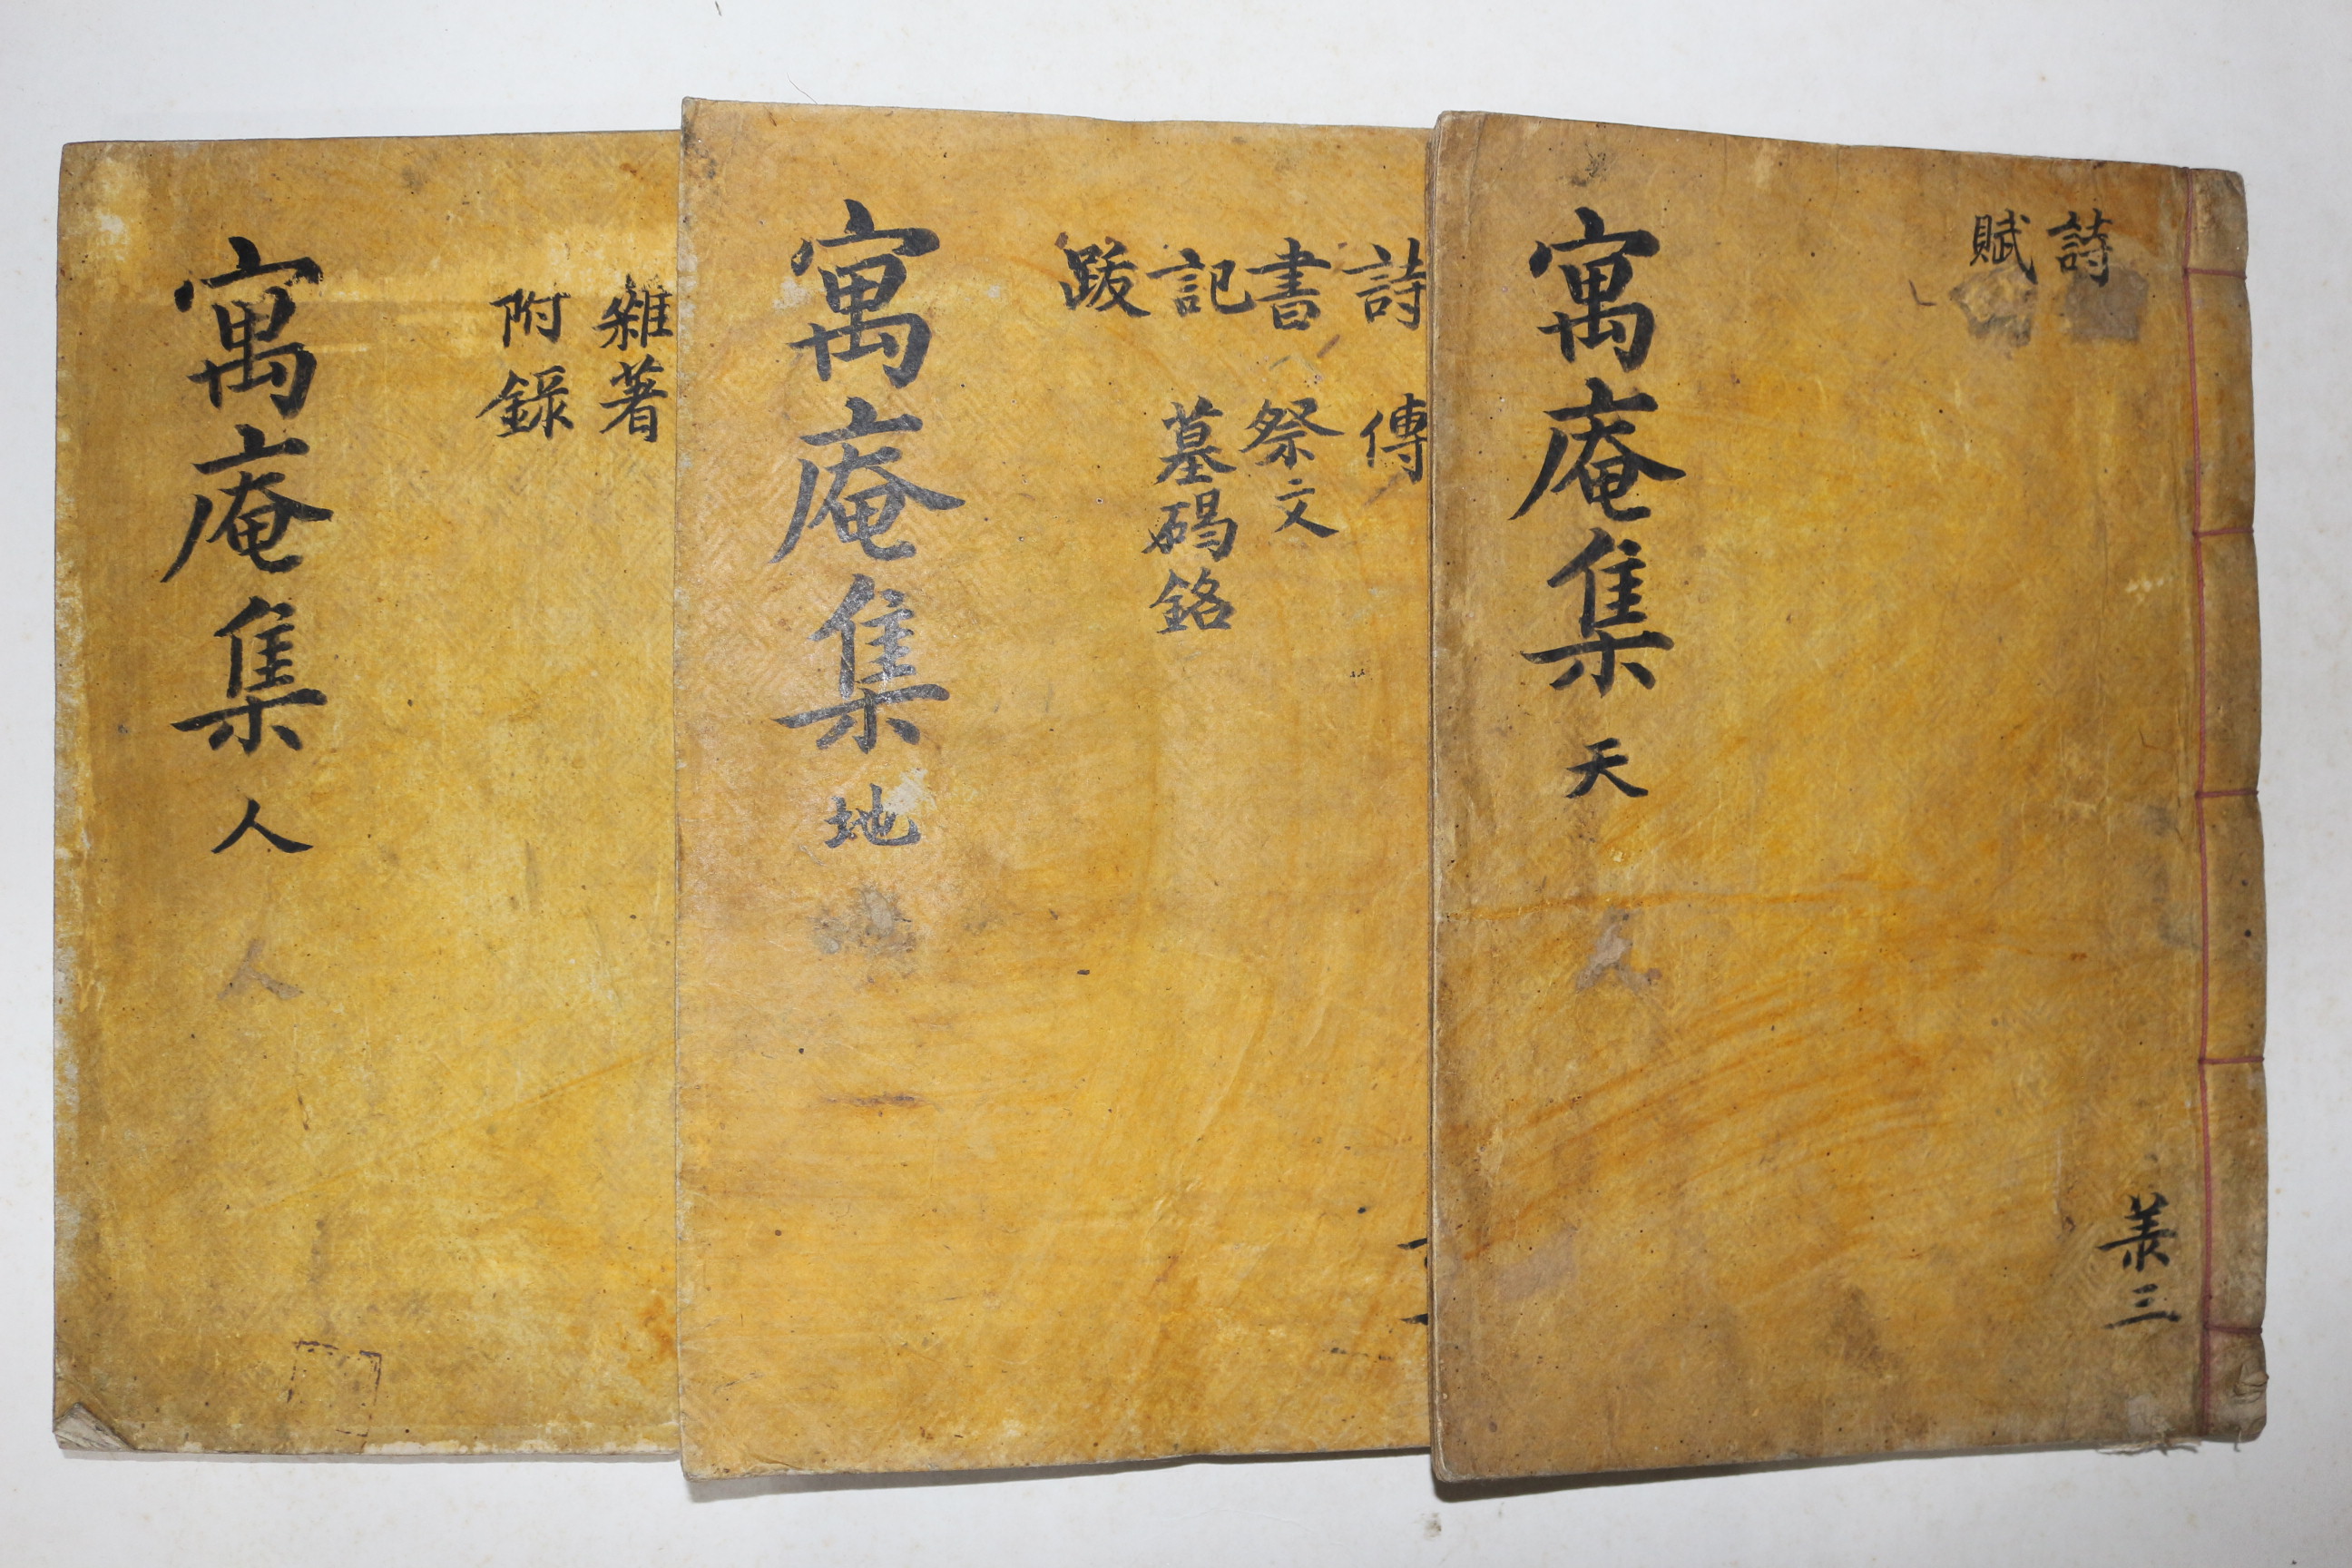 詩
賦
寓庵集 天
羙三
詩 傳
書 祭文
記 墓碣銘
跋
寓庵集 地
雜著
附録
寓庵集 人
人